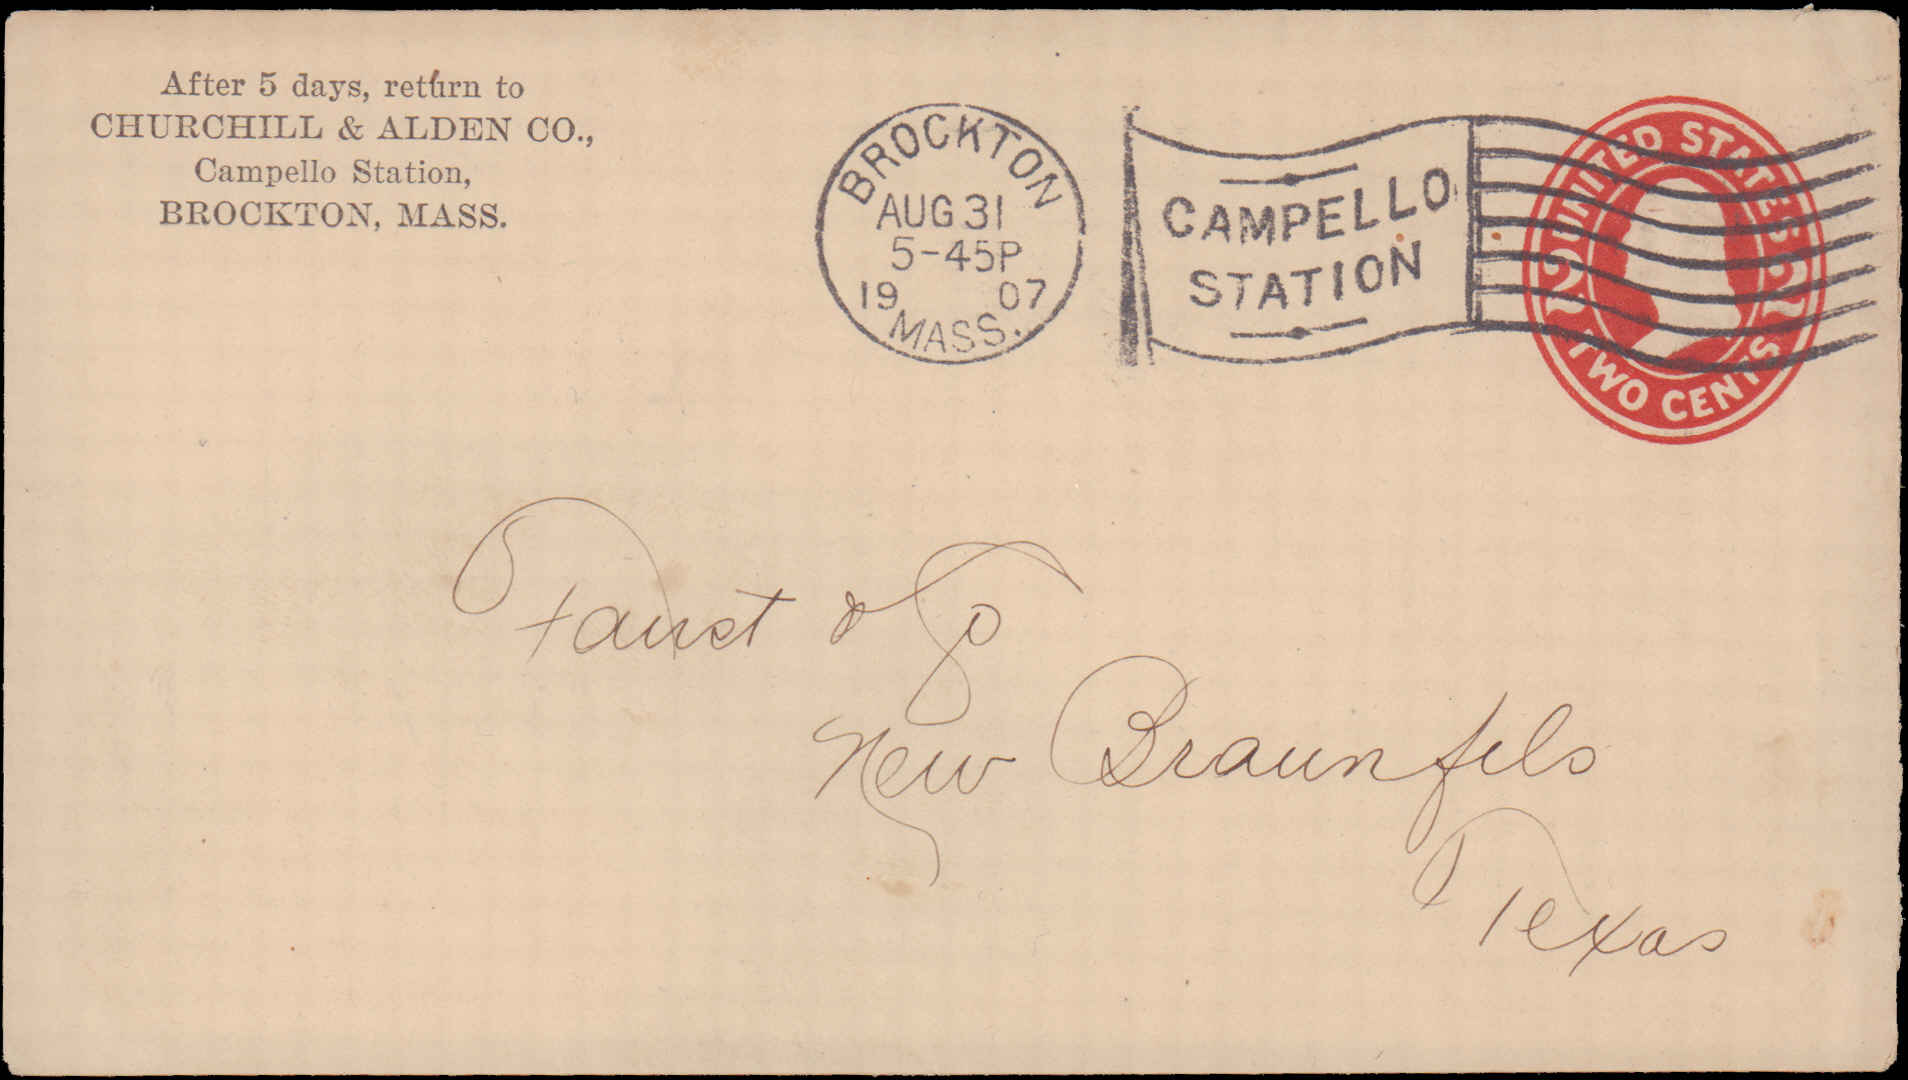 After 5 days, return to
CHURCHILL & ALDEN CO.,
Campello Station,
BROCKTON, MASS.
BROCKTON
AUG 31
5-45P
19 07
MASS.
CAMPELLO
STATION
UNITED STATES
2 2
TWO CENTS
Faust & Co
New Braunfels
Texas